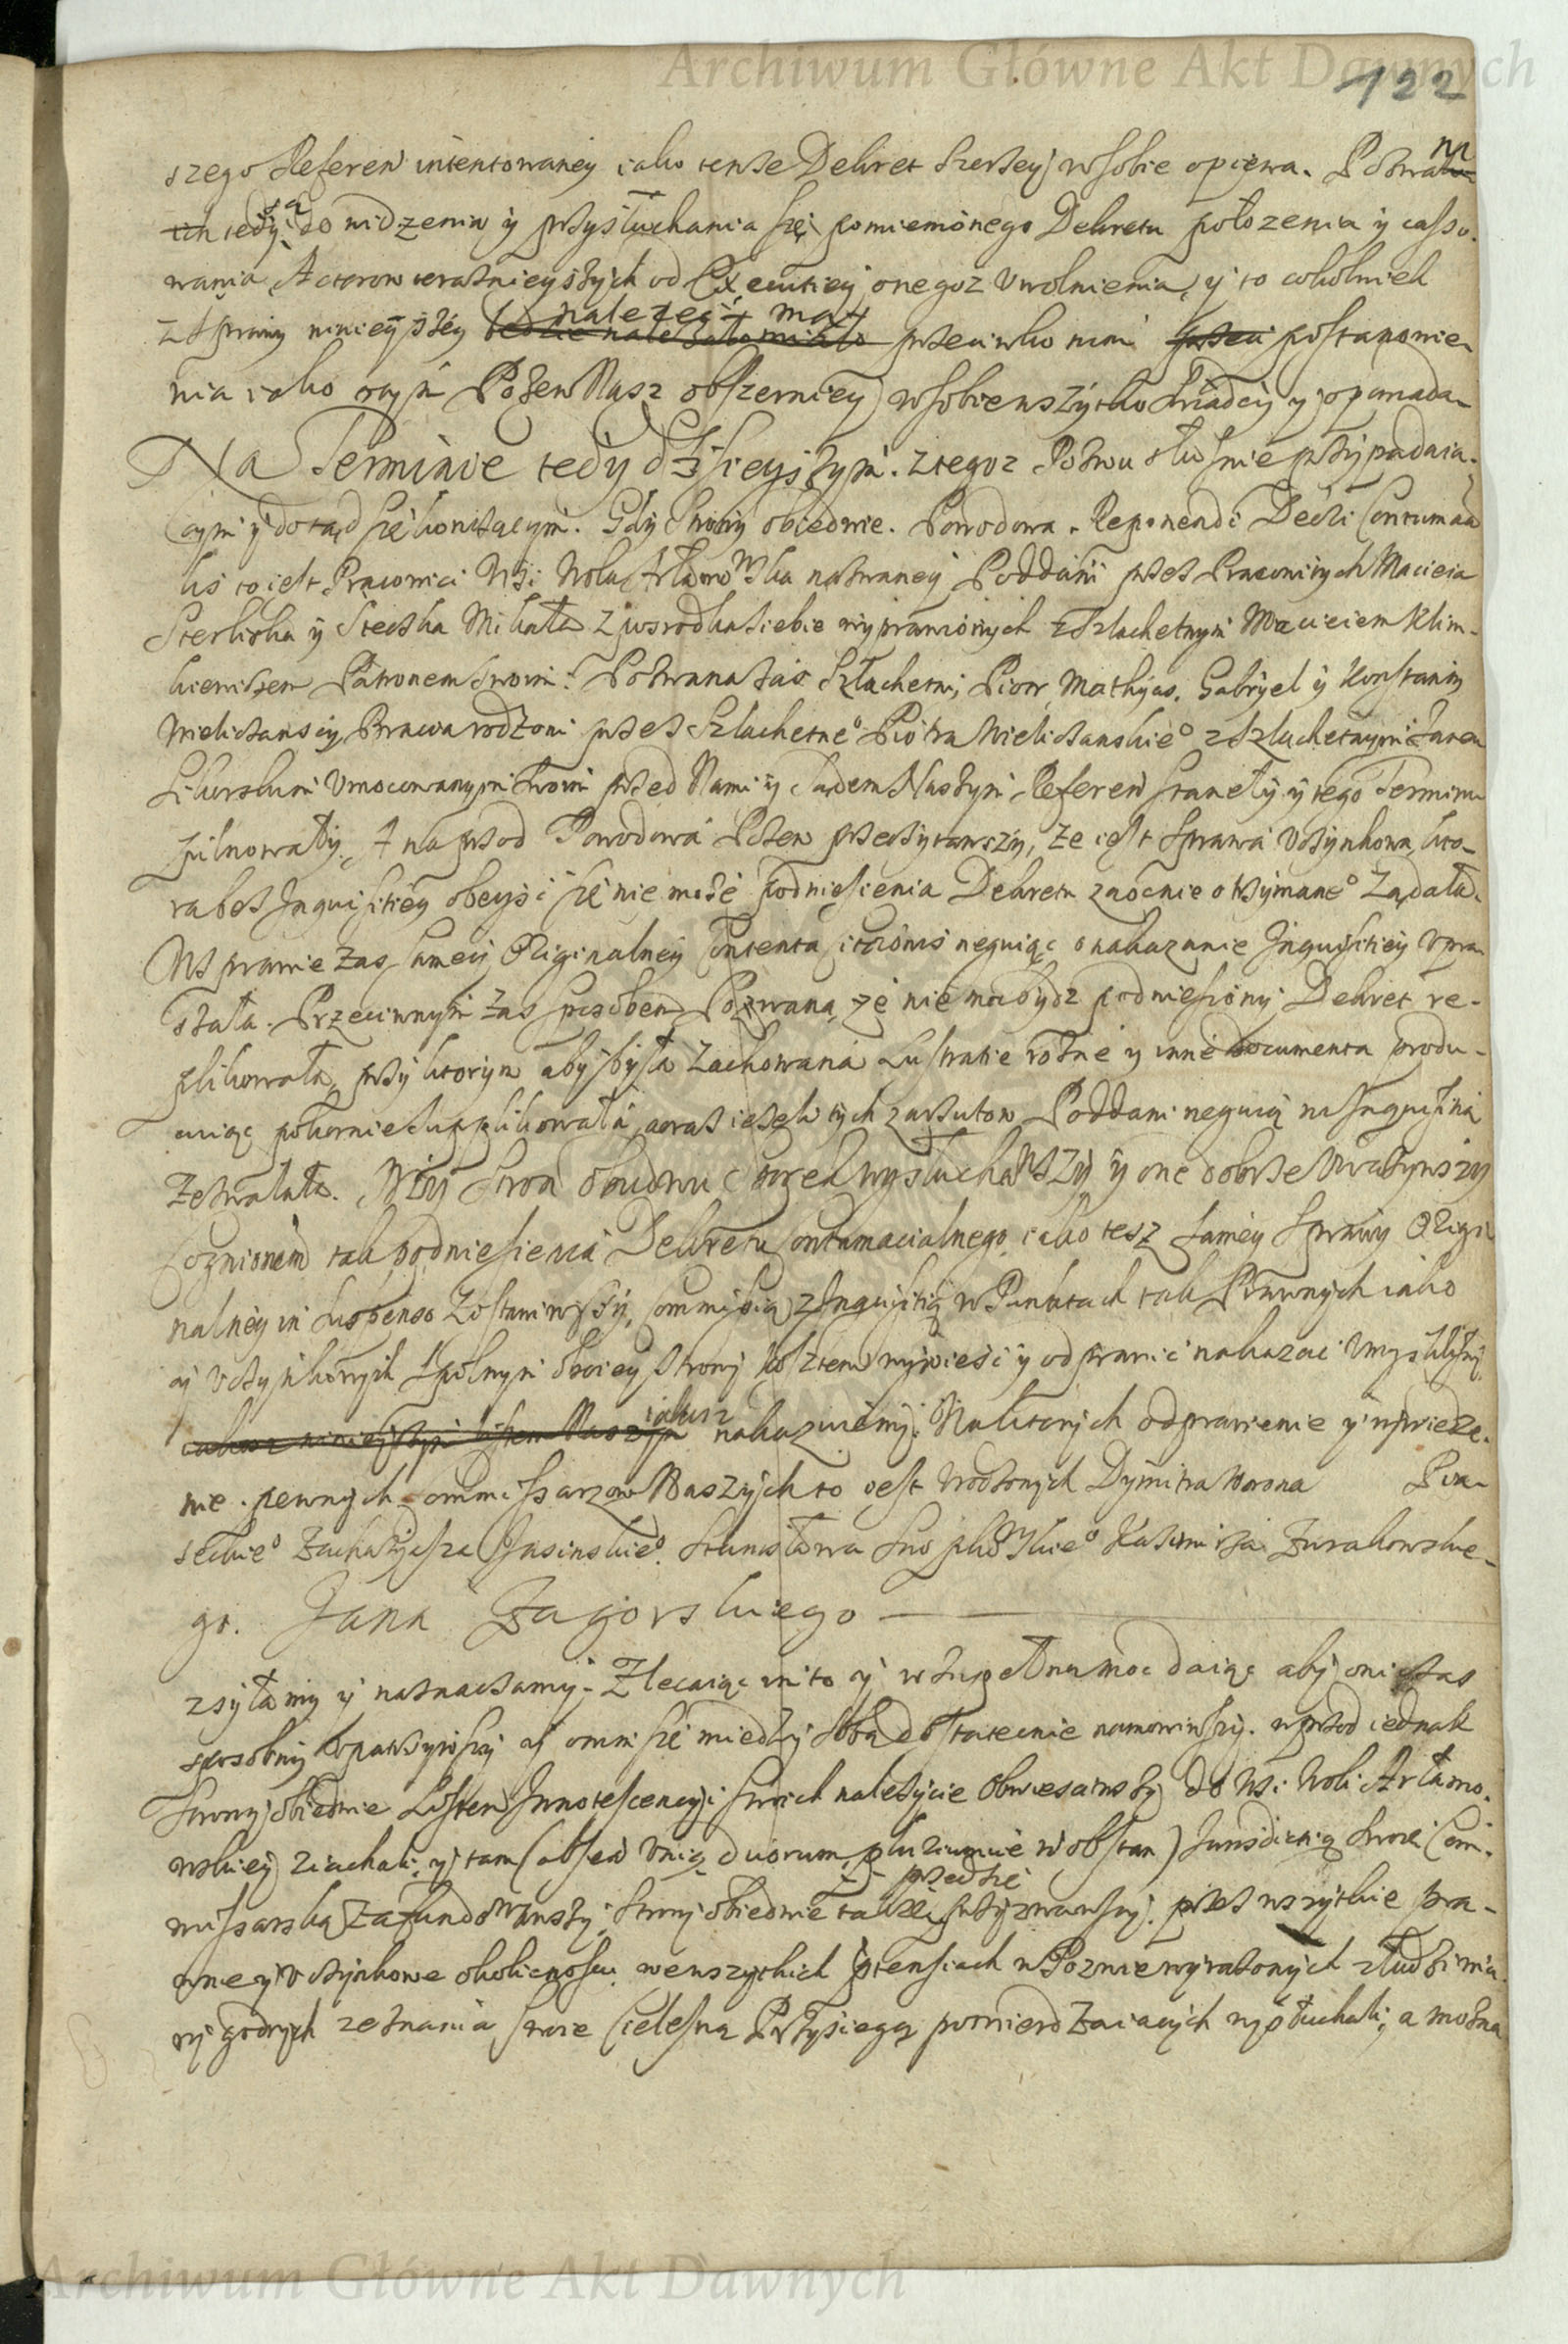 Archiwum Główne Akt Dawnych
122
szego Referen̄ intentowaney iako tenże Dekret szerzey w sobie opiewa. Pozwa
tedy są do widzenia y przysłuchania się pomienionego Dekretu położenia y casso-
wania, Actorow terażnieyszych od Executiey onegoz uwolnienia, y to cokolwiek
z sprawy ninieyszey należeć ma przeciwko nim postanowie-
nia iako o tym Pozew Nasz obszerniey w sobie wszytko świadczy y opowiada.
Na Terminie tedy dzisieyszym z tegoz Pozwu słusznie przypadaia-
cym y dotąd się kontynuącym. Gdy strony obiedwie. Powodowa. Reponendi Decreti Contumatia
lis to iest Pracowici Wsi Wola Artamowska nazwaney Poddani przez Pracowitych Macieia
y Stecka Mikała z posrodka siebie wyprawionych z Szlachetnym Macieiem Klim-
kiewiczem Patronem swoim. Pozwana zaś Szlachetni Piotr, Mathyas, Gabryel y Konstanty
Wieliczanscy Bracia rodzoni przez Szlachetne° Piotra Wieliczanskie° z Szlachetnym Janem
umocowanym swoim przed Nami y Sądem Naszym Referen̄ stanęły y tego Terminu
pilnowały. A naprzod Powodowa Pozew przeczytawszy, że iest sprawa uczynkowa, kto-
ra bez Inquisitiey obeyść się nie może podniesienia Dekretu zaocznie otrzymane° żądała.
W sprawie zas samey Originalney Contenta Citationis neguiąc o nakazanie Inquisitiey upra-
szała. Przeciwnym zas sposobem Pozwana, że nie ma bydz podniesiony Dekret re-
plikowała, przy ktorym aby była zachowana Lustratie rożne y inne documenta produ-
cuiąc pokornie supplikowała, a oraz ieżeli tych zarzutow Poddani neguią na Inquisitią
zezwalała. My stron obudwu Controwersij wysłuchawszy y one dobrze uważywszy
Cognitionem tak podniesienia Dekretu Contumacialnego, iako tesz samey sprawy Origi
nalney in suspenso zostawiwszy, Commissią z Inquisitią w Punktach tak Prawnych iako
y uczynkowych spolnym oboiey strony kosztem wywieść y odprawić nakazać umyslilismy
iakosz nakazuiemy. Na ktorych odprawienie y wywiedze-
nie pewnych Commissarzow Naszych to iest Urodzonych Dymitra Worona Pia-
seckie° Zacharyasza Jasinskie° Stanisława Kazimirza Zurakowskie-
go. Jana Zagorskiego
zsyłamy y naznaczamy. Zlecaiąc im to y w zupełną moc daiąc aby oni czas
sposobny upatrzywszy y onim się miedzy sobą dostatecznie namowiwszy. wprzod iednak
strony obiedwie Listem Innotescencyi swoich należycie obwiesciwszy do Wsi Woli Artamo-
wskiey ziachali, y tam (absen̄ unius duorum, plurium̄ve n̄ obstan̄) Jurisdictią swoię Com-
missarską zafundowawszy, strony obiedwie także przed się przyzwawszy, przez wszytkie pra-
wne y uczynkowe okolicznosci we wszytkich praetensiach w Pozwie wyrażonych z ludzi wia-
ry godnych zeznania swoie Cielesną Przysięgą powierdzaiących wysłuchali, a można
Archiwum Główne Akt Dawnych